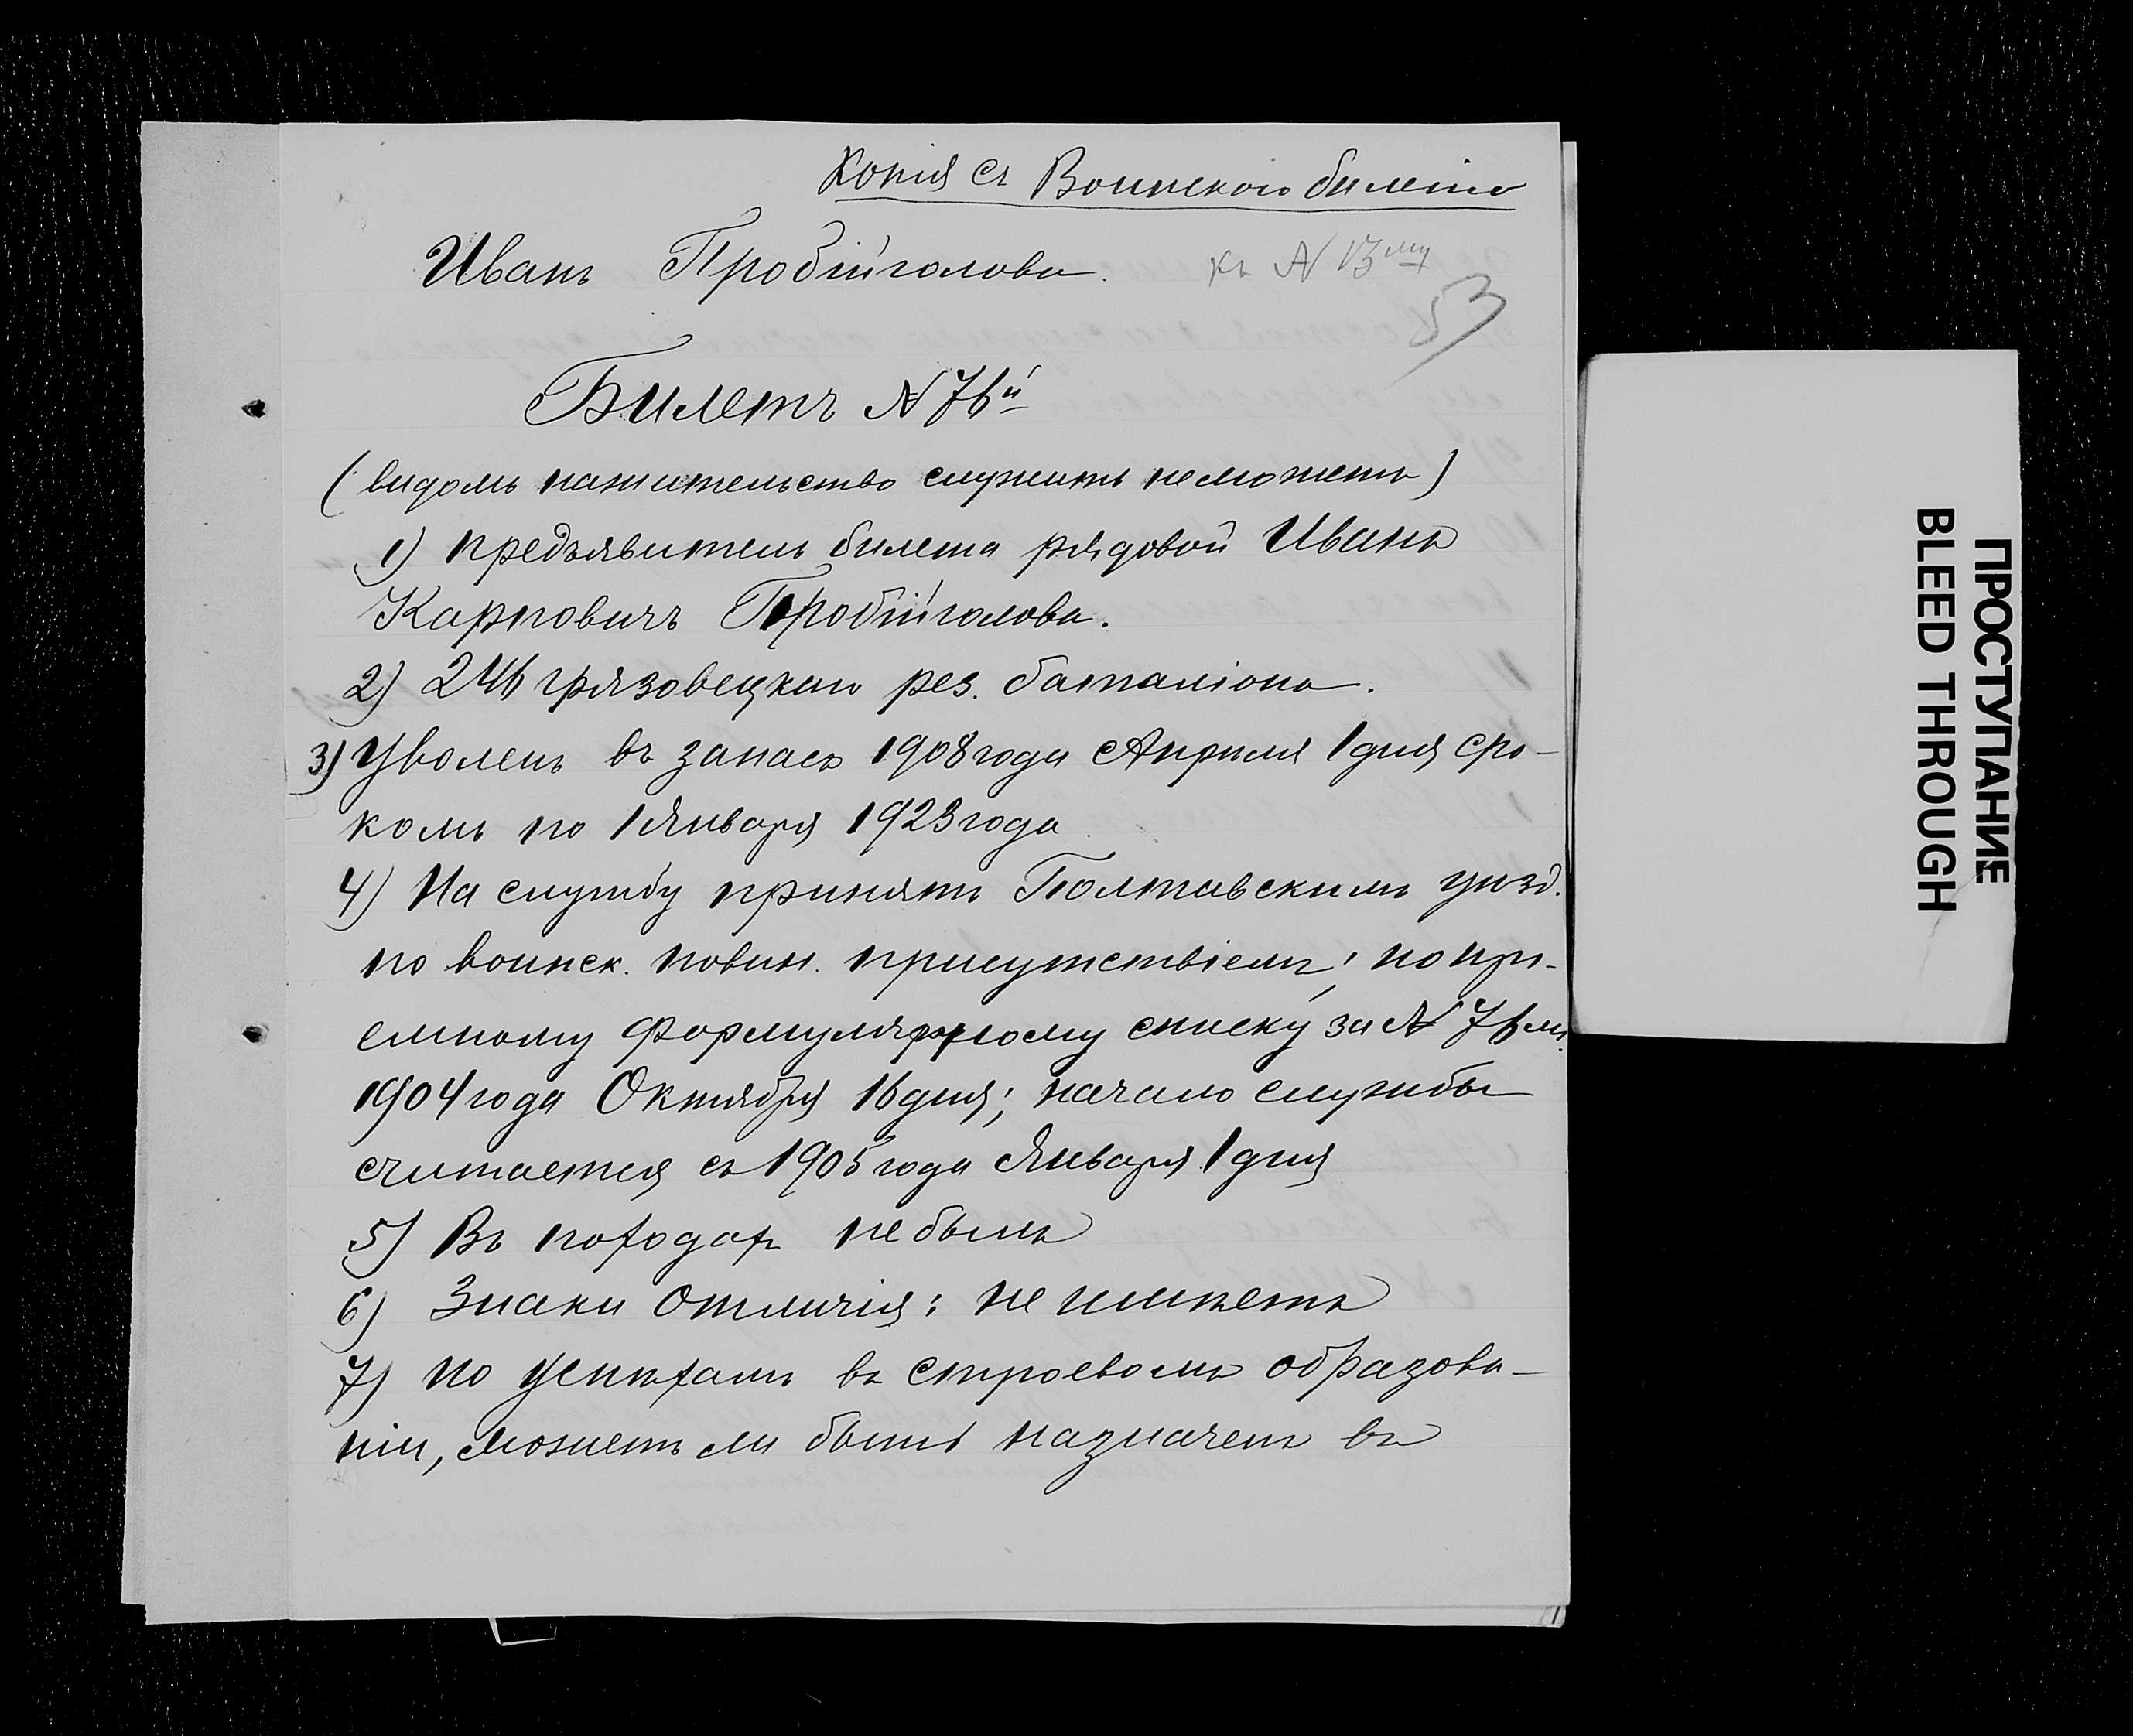 Копія съ Воинскаго билета
Иванъ Пробійголова.
къ № 13му
53
Билетъ № 76й
(видомъ нажительство служить неможетъ)
1) предъявитель билета рядовой Иванъ
Карповичъ Пробійголова.
2) 246 грязовецкаго рез. баталіона.
3) Уволенъ въ запасъ 1908 года Апрѣля 1 дня сро-
комъ по 1 Января 1923 года
4) На службу принятъ Полтавскимъ уѣзд.
по воинск. повин. присутствіемъ; по прі-
емному формулярному списку за № 76 мъ.
1904 года Октября 16 дня; начало службы
считается съ 1905 года Января 1 дня
5) Въ походахъ не былъ
6) Знаки отличія: не имѣетъ
7) по успѣхамъ въ строевомъ образова-
ніи, можетъ ли быть назначенъ въ
ПРОСТУПАНИЕ
BLEED THROUGH